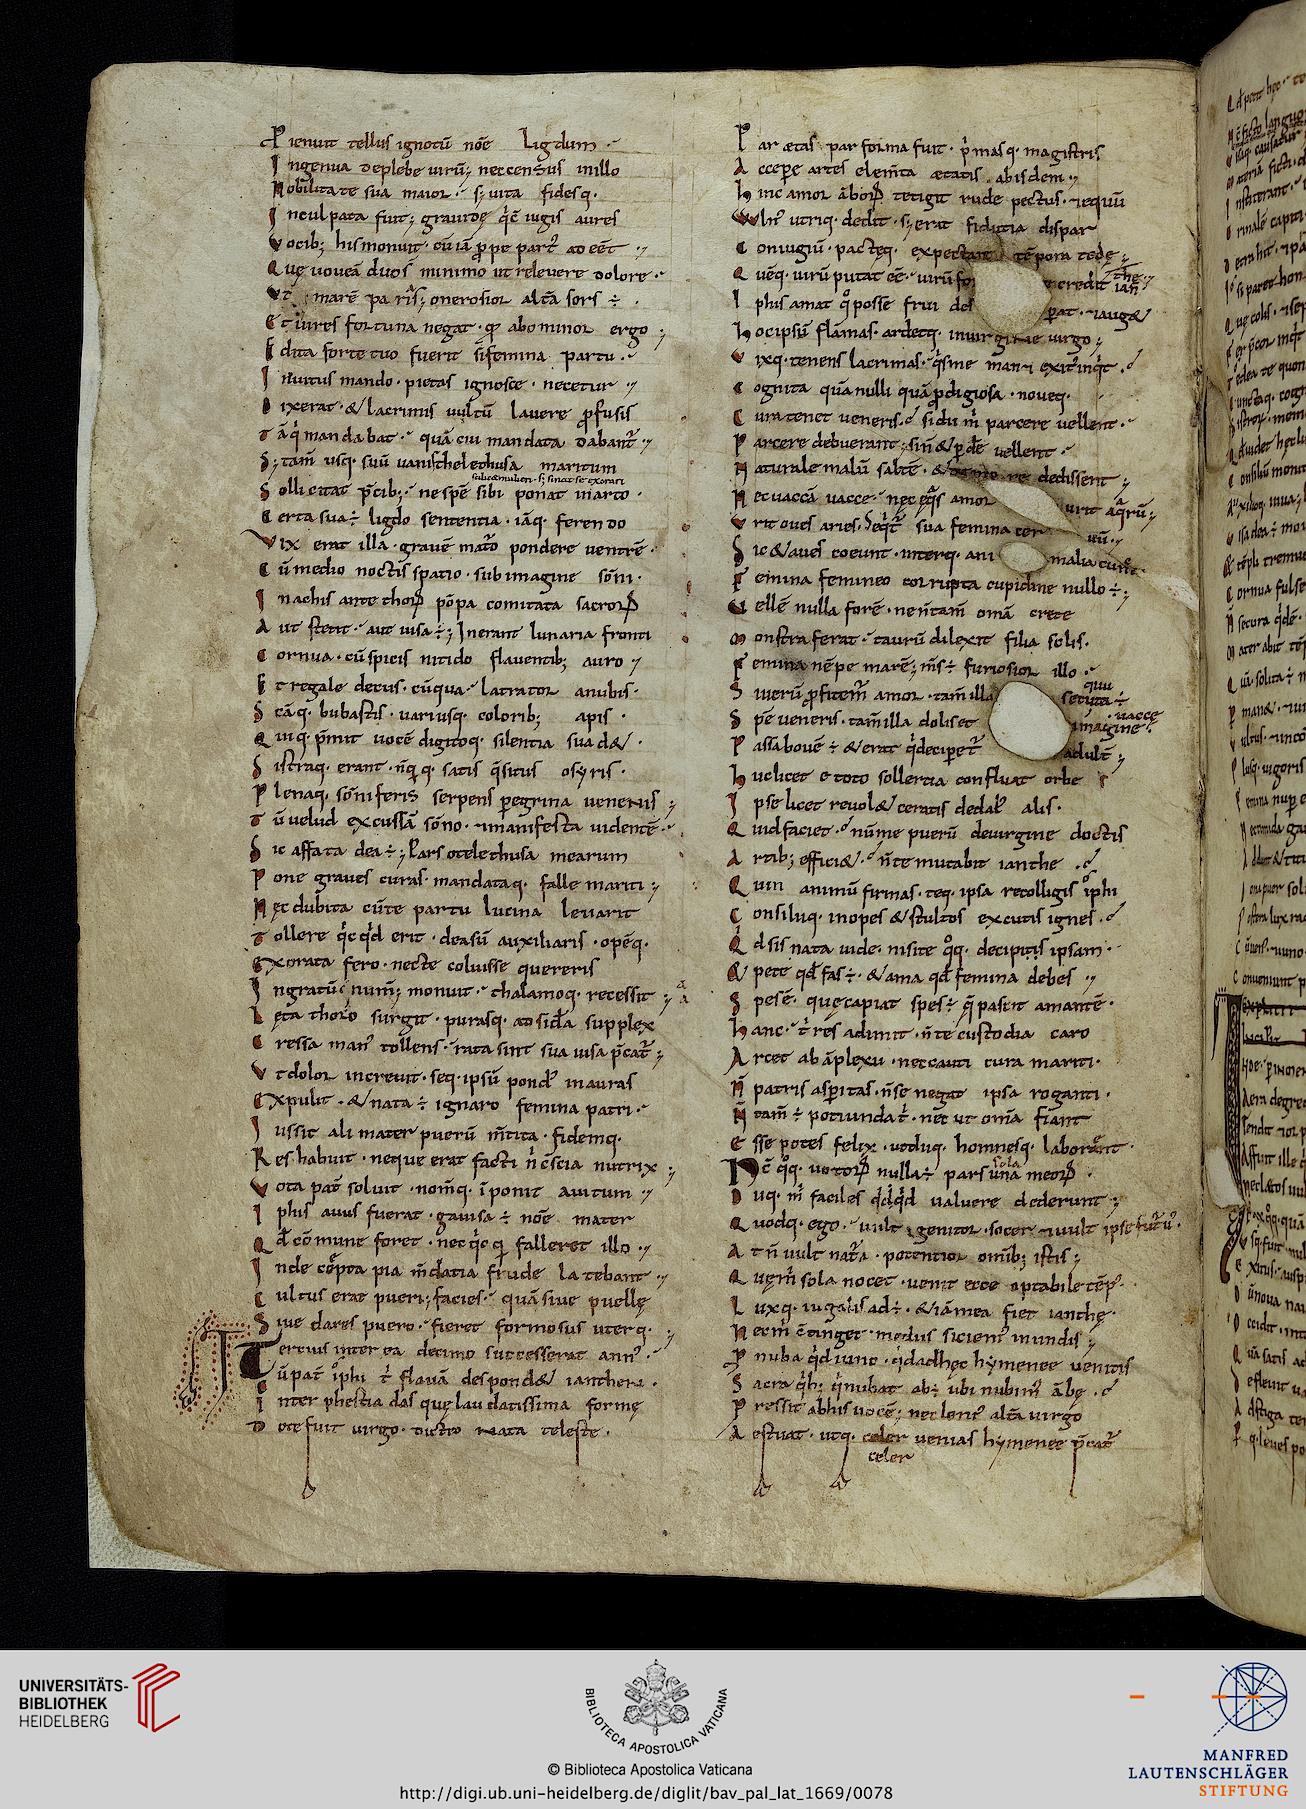 P ienuit tellus ignotū nōe Ligdum
I ngenua deplebe virū; neccensus inillo
N obilitate sua maior · s; uita fidesq·
I nculpata fuit; grauidę q̄c iugis aures
V ocib; hismonuit · cū iā ꝓpe part᾿ adeēt
Q uę uoueā duoś minimo utreleuere dolore
Vt marē pariaś; onerosior altā sors ÷
E t uires fortuna negat · qđ abominor ergo
E dita forte tuo fuerit sifemina partu
I nuitus mando · pietas ignosce · necetur
D ixerat · & lacrimis uultū lauere ꝓfusis
T āq̇ mandabat · quā cui mandata dabant᾿
S; tam̄ usq· suū uanis thelethusa maritum
S ollicitat p̄cib; nespē sibi ponat inarto
C erta sua ÷ ligdo sententia · iāq· ferendo
Vix erat illa · grauē mat᾿o pondere uentrē
C ū medio noctis spatio · subimagine sōni
I nachis ante thorū pōpa comitata sacrorū
A ut stetit · aut uisa ÷; Inerant lunaria fronti
C ornua · cū spicis nitido flauentib; auro
E t regale decus · cūqua latrator anubis
S cāq· bubastis · uariusq· colorib; apis
Q uiq· p̄mit uocē digitoq· silentia suad&
S istraq· erant · nūq̄q· satis q̄situs osyris
P lenaq· sōniferis serpens peregrina uenenis
T ū uelud excussā sōno · ⁊manifesta uidentē
S ic affata dea ÷; Pars o telethusa mearum
P one graues curas · mandataq· falle mariti
N ęc dubita cūte partu lucina leuarit
T ollere q̇cq̇d erit · deasū auxiliaris · opēq·
E xorata fero · necte coluisse quereris
I ngratū num̄; monuit · thalamoq· recessit
L ęta thoro surgit · purasq· ad sidera supplex
C ressa man᾿ tollens · rata sint sua uisa p̄cat᾿
V t dolor increuit · seq· ipsū pond᾿ inauras
E xpulit · & nata ÷ ignaro femina patri
I ussit ali mater puerū m̄tita · fidemq·
R es habuit · neque erat facti n̄ c̄scia nutrix
V ota pat᾿ soluit · nom̄q· īponit auitum
I phis auus fuerat · gauisa ÷ nōe mater
Q d̄ cōmune foret · nec q̄cq̄ falleret illo
I nde cēpta pia m̄dacia frude latebant
C ultus erat pueri; facies · quā siue puellę
S iue dares puero · fieret formosus uterq·
T ertius inter ea decimo successerat ann᾿
C ū pat᾿ iphi t᾿ flauā despond& ianthen
I nter phestiadas quę laudatissima formę
D ote fuit uirgo · dicteo nata teleste
P ar ætas par forma fuit · p̄masq· magistris
A ccepe artes elem̄ta ætatis · abisdem
H inc amor āborū tetigit rude pectus · ⁊equū
Vuln᾿ utriq· dedit · s; erat fiducia dispar
C oniugiū · pactęq· expectant tēpora tedę
Q uēq· uirū putat eē · uirū fo e credit ian the
I phis amat q̇ posse frui des perat · ⁊aug&
H ocipsū flāmas · ardetq· inuirgine uirgo
V ixq· tenens lacrimas · q̇s me man& exit᾿ inq̇t
C ognita quā nulli quā ꝓdigiosa · nouęq·
C ura tenet ueneris · si di m̄ parcere uellent
P arcere debuerant; sin̄ & perdere uellent
N aturale malū saltē · & de more dedissent
N ec uaccā uacce · nec eq̄s amor urit aq̄rū
V rit oues aries · seq̇t᾿ sua femina cer uū
S ic & aues coeunt · interq· ani malia cuncta
F emina femineo correpta cupidine nullo ÷
V ellē nulla forē · ne n̄ tam̄ om̄a crete
M onstra ferat · taurū dilexit filia solis
F emina nēpe marē; m̄s ÷ furiosior illo
S i uerū ꝓfitem᾿ amor · tam̄ illa secuta ÷
S pē ueneris · tam̄ illa dolis et imagine uaccę
P assa bouē ÷ & erat q̇deciperet᾿ adult᾿
H uc licet e toto sollertia confluat orbe
I pse licet reuol& ceratis dedal᾿ alis
Q uid faciet · nūme puerū deuirgine doctis
A rtib; effici& · n̄ te mutabit ianthe
Q uin animū firmas · teq· ipsa recolligis iphi
C onsiliiq· inopes & stultos excutis ignes
Q d sis nata uide · nisite q̇q· decipitis ipsam
& pete qd̄ fas ÷ · & ama qd̄ femina debes
S pes ē · quę capiat spes ÷ q̄ pascit amantē
H anc t᾿ res adimit · n̄ te custodia caro
A rcet ab āplexu · neccauti cura mariti
N̄ patris asperitas · n̄ se negat ipsa roganti
N̄ tam̄ ÷ potiunda t᾿ · nec ut om̄a fiant
E sse potes felix · utdiiq· hominesq· laborant
Nc̄ q̇q· uotorū nulla ÷ pars una sola meorū
D iiq· m̄ faciles q̇dq̇d ualuere dederunt
Q uodq· ego · uult genitor · socer ⁊uult ipse futur᾿
A t n̄ uult nat᾿a · potentior omīb; istis
Q uęm̄ sola nocet · uenit ecce optabile tēp᾿
L uxq· iugalis ad ÷ · & iā mea fiet ianthe
N ec m̄ c̄tinget · medus siciem᾿ inundis
P nuba q̇d iuno · q̇dadhęc hymenee uenitis
S acra q̇b; q̇nubat ab ÷ ubi nubim᾿ ābę
P ressit abhis uocē; nec leni᾿ altā uirgo
A estuat · utq· celer uenias hymenee p̄cat᾿
celer
UNIVERSITÄTS-
BIBLIOTHEK
HEIDELBERG
BIBLIOTECA APOSTOLICA VATICANA
© Biblioteca Apostolica Vaticana
http://digi.ub.uni-heidelberg.de/diglit/bav_pal_lat_1669/0078
MANFRED
LAUTENSCHLÄGER
STIFTUNG